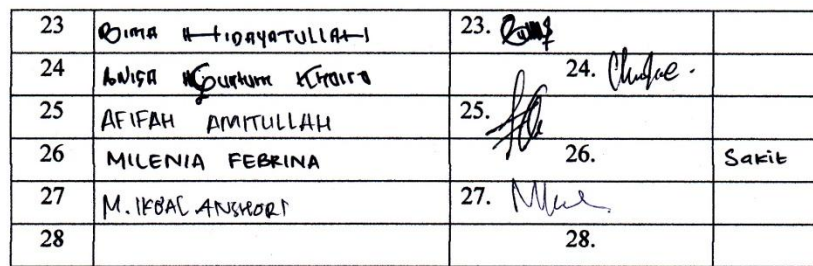 23 BIMA HIDAYATULLAH 23.
24 ANISA KHAIRA 24.
25 AFIFAH AMITULLAH 25.
26 MILENIA FEBRINA 26. Sakit
27 M. IKBAL ANSHORI 27.
28 28.